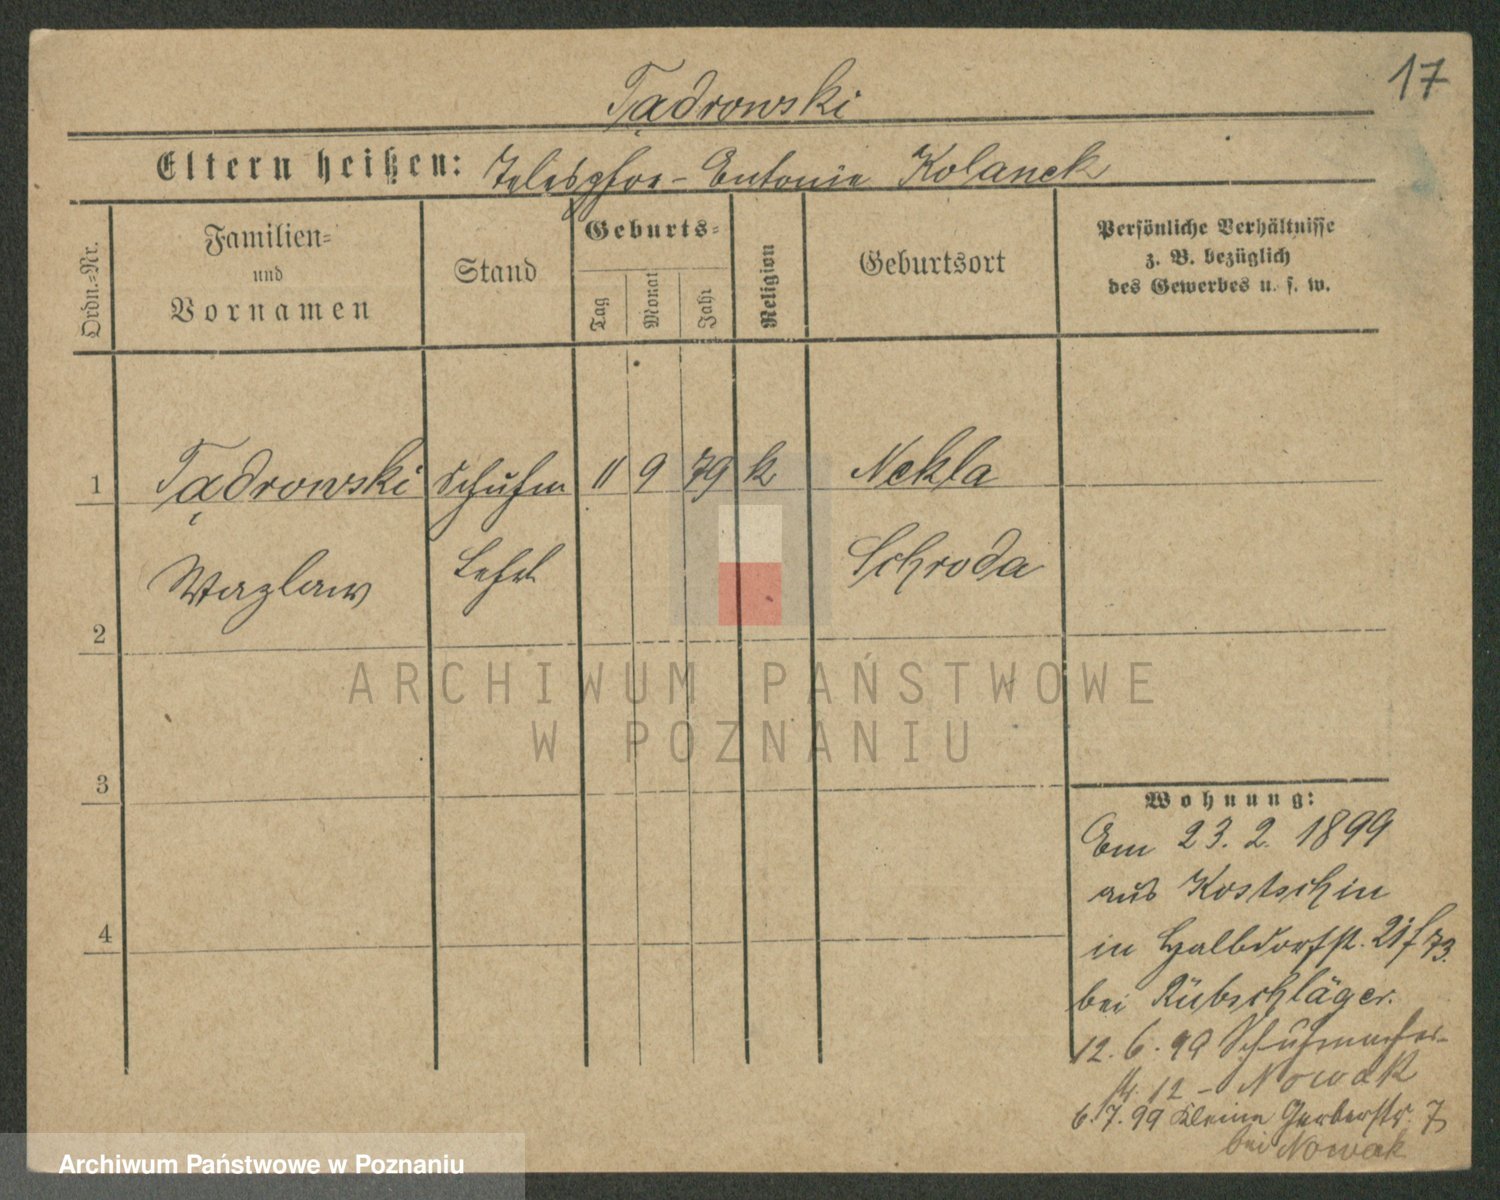 17
Tądrowski
Eltern heißen: Telesphor - Antonie Kolanek
Ordn.=Nr.
Familien=
und
Vornamen
Stand
Geburts=
Tag
Monat
Jahr
Religion
Geburtsort
Persönliche Verhältnisse
z. B. bezüglich
des Gewerbes u. s. w.
1 Tądrowski Schuhm 11 9 79 k Nekla
Wazlaw Lehrl Schroda
2
3
4
ARCHIWUM PAŃSTWOWE
W POZNANIU
Wohnung:
Am 23. 2. 1899
aus Kostschin
in Halbdorfst.
bei Rübschläger.
12. 6. 99 Schuhmacher-
st. 12 - Nowak
6. 7. 99 Kleine Gerberstr. 7
bei Nowak
Archiwum Państwowe w Poznaniu